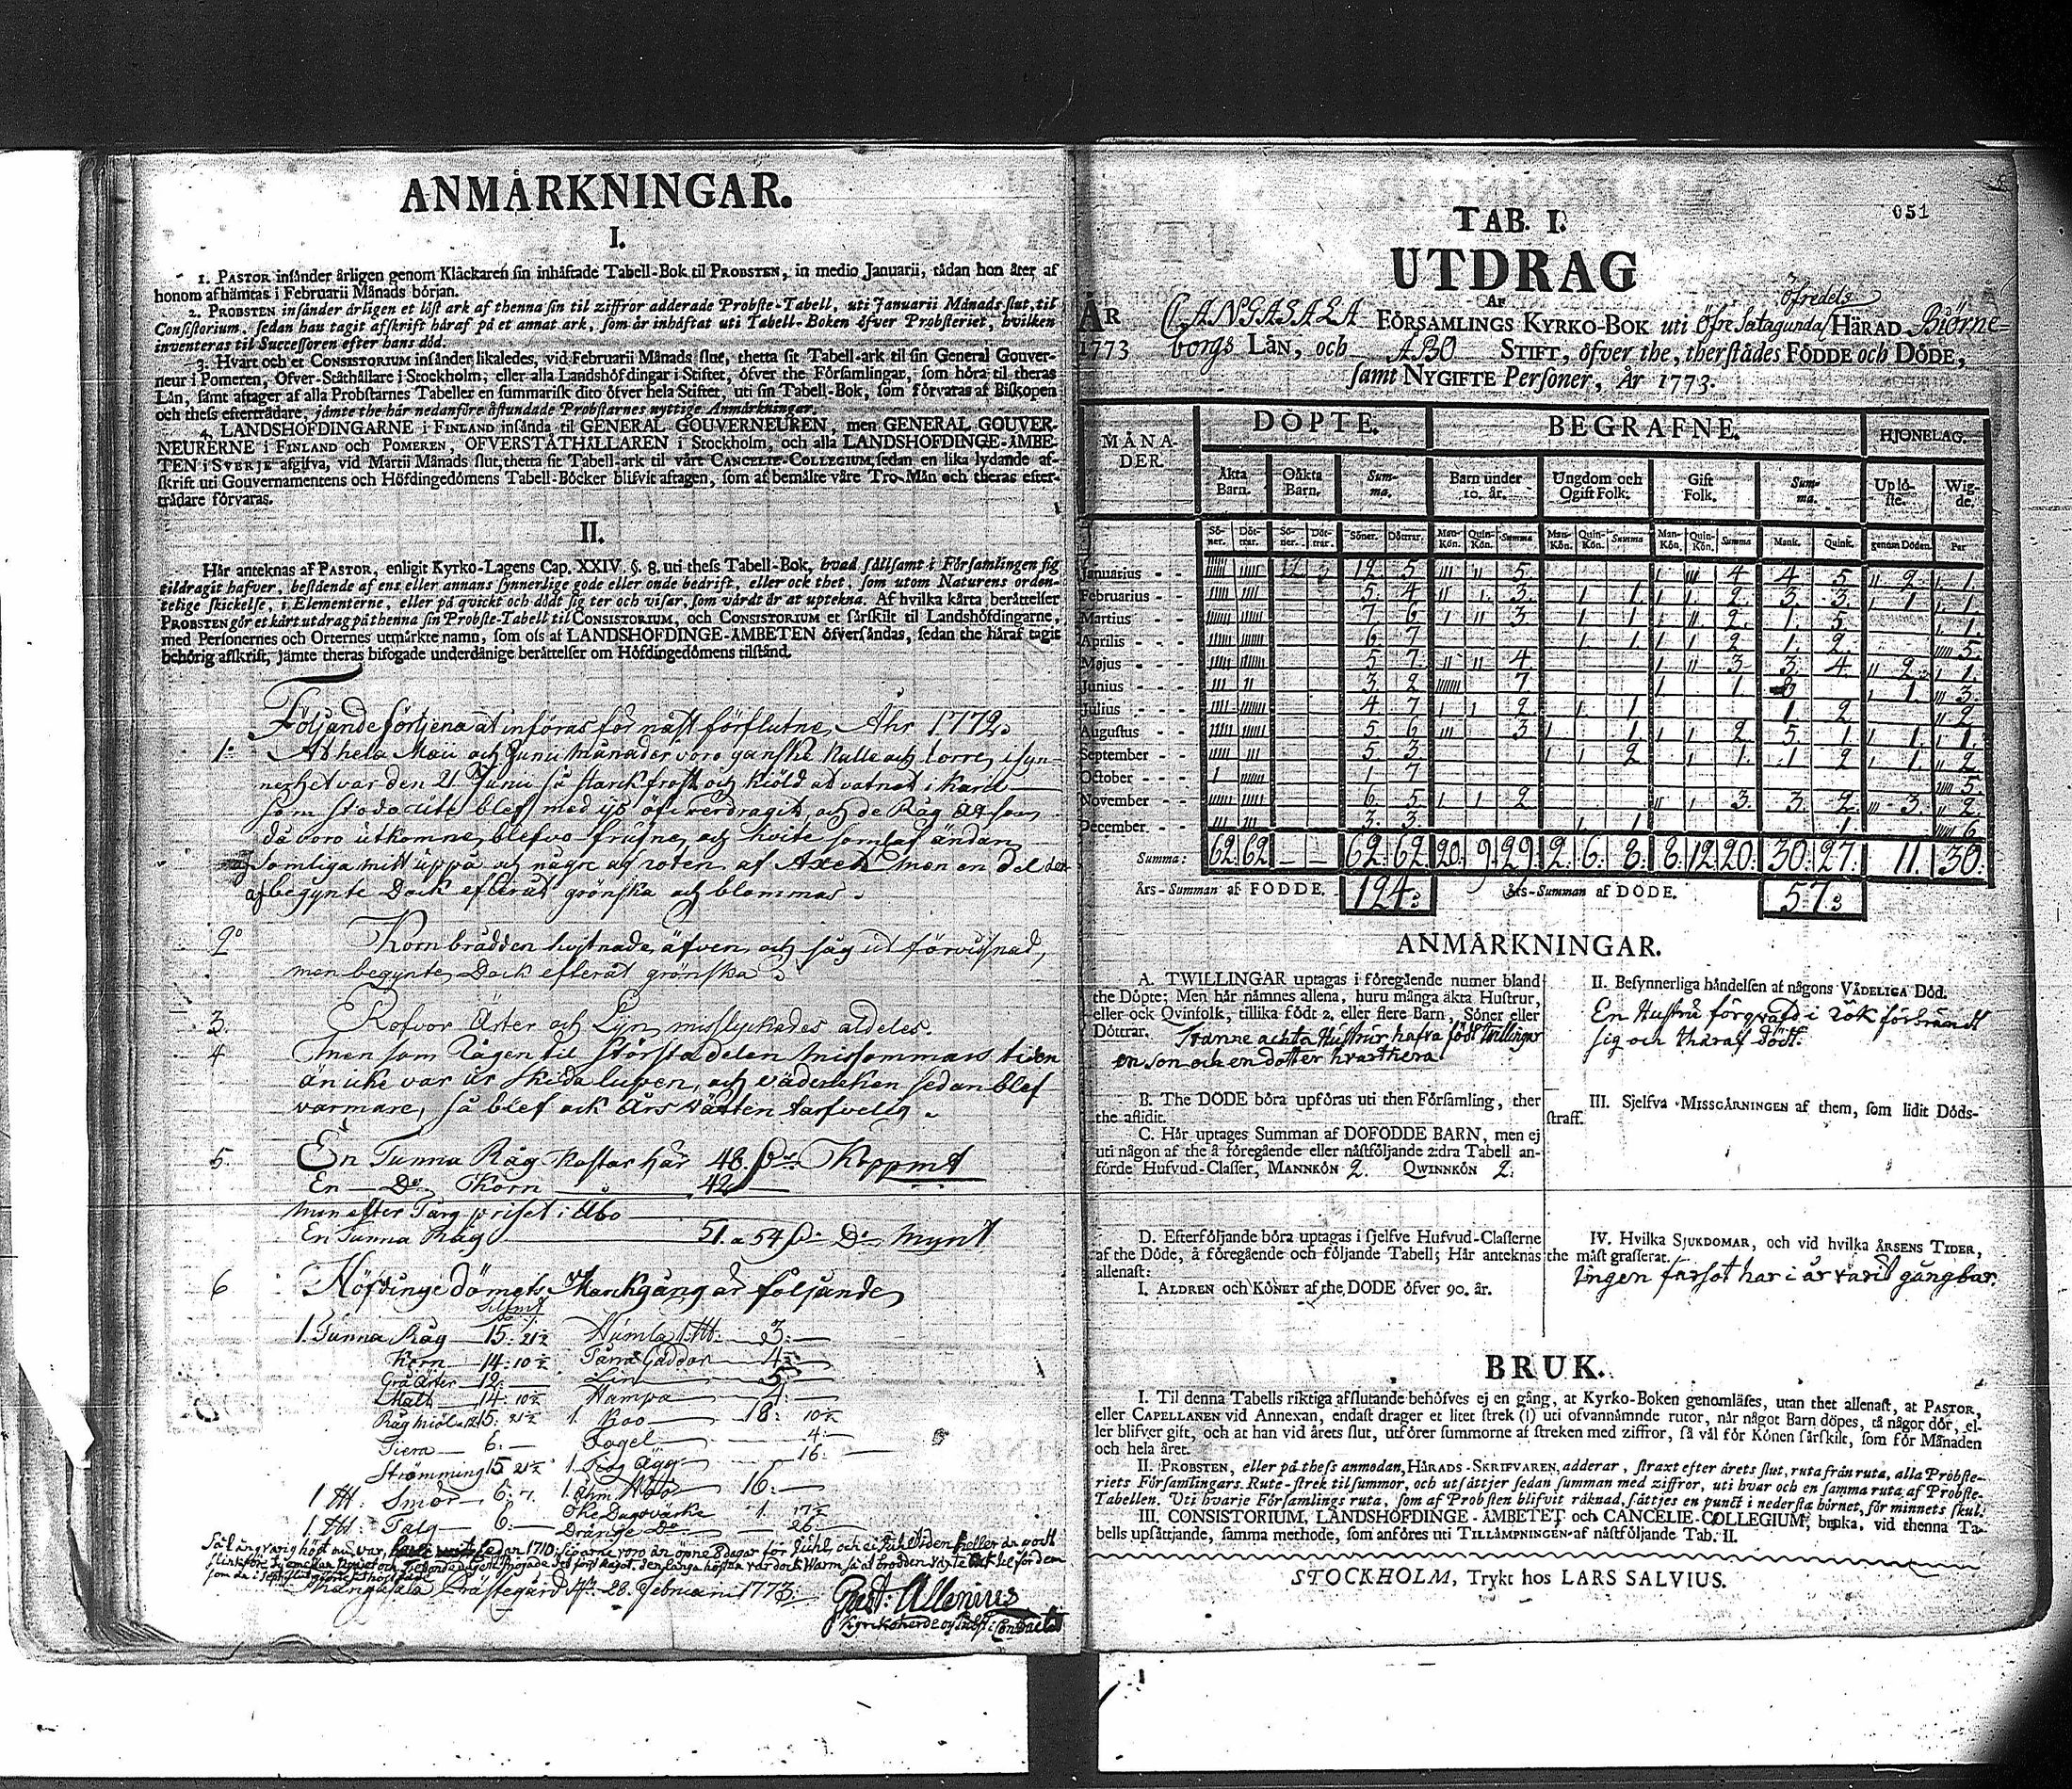 ANMÅRKNINGAR.
I.
1. PASTOR insånder årligen genom Klåckaren sin inhåftade Tabell-Bok til PROBSTEN, in medio Januarii, tådan hon åter af
honom afhåmtas i Februarii Månads början.
2. PROBSTEN insånder årligen et löst ark af thenna sin til ziffror adderade Probste-Tabell, uti Januarii Månads slut, til
Consistorium, sedan han tagit afskrift håraf på et annat ark, som år inhåftat uti Tabell-Boken öfver Probsteriet, hvilken
inventeras til Successoren efter hans död.
3. Hvart och et CONSISTORIUM insånder likaledes, vid Februarii Månads slut, thetta sit Tabell-ark til sin General Gouver-
neur i Pomeren, Ofver-Ståthållare i Stockholm, eller alla Landshöfdingar i Stiftet, öfver the Församlingar, som höra til theras
Lån, samt aftager af alla Probstarnes Tabeller en summarisk dito öfver hela Stiftet, uti sin Tabell-Bok, som förvaras af Biskopen
och thess eftertrådare, jåmte the hår nedanföre åstundade Probstarnes nyttige Anmårkningar.
4. LANDSHOFDINGARNE i FINLAND insånda til GENERAL GOUVERNEUREN, men GENERAL GOUVER-
NEURERNE i FINLAND och POMEREN, OFVERSTÅTHÅLLAREN i Stockholm, och alla LANDSHOFDINGE-ÅMBE-
TEN i SVERJE afgifva, vid Martii Månads slut, thetta sit Tabell-ark til vårt CANCELIE-COLLEGIUM, sedan en lika lydande af-
skrift uti Gouvernamentens och Höfdingedömens Tabell-Böcker blifvit aftagen, som af bemålte våre Tro-Mån och theras efter-
trådare förvaras.
II.
Hår anteknas af PASTOR, enligit Kyrko-Lagens Cap. XXIV. §. 8. uti thess Tabell-Bok, hvad sållsamt i Församlingen sig
tildragit hafver, bestående af ens eller annans synnerlige gode eller onde bedrift, eller ock thet, som utom Naturens orden-
telige skickelse, i Elementerne, eller på qvickt och dödt sig ter och visar, som vårdt år at uptekna. Af hvilka kårta beråttelser
PROBSTEN gör et kårt utdrag på thenna sin Probste-Tabell til CONSISTORIUM, och CONSISTORIUM et sårskilt til Landshöfdingarne,
med Personernes och Orternes utmårkte namn, som oss af LANDSHOFDINGE-ÅMBETEN öfversåndas, sedan the håraf tagit
behörig afskrift, jåmte theras bifogade underdånige beråttelser om Höfdingedömens tilstånd.
Följande förtjena at införas för näst förflutne Åhr 1772.
1: At hela Maii och Junii månader voro ganske kulle och torre, i syn-
nerhet var den 21 Junii så starck frost och kiöld at vatnet i karil
som stodo ute blef med is öfverdragit, och de Råg Ax som
då voro utkomne, blefvo frusne, och hvite, somlaf ändan
somliga mitt uppå och några ag roten af Axet men en del der
af begynte Dock efteråt grönska och blommas.
2o Korn brådden hvitnade äfven, och såg ut förvisnad,
men begynte Dock efteråt grönska.
3. Rofvor Ärter och Lijn misslyckades aldeles.
4 Men som Rågen til största delen Missommars tiden
än icke var ur skida lupen, och väderleken sedan blef
varmare, så blef ock Års Växten tarfvelig.
5. En Tunna Råg kostar här 48. Dr. Koppmt
En Do Korn 42
Men efter Torg priset i Åbo
En Tunna Råg 51. a 54 Dr. Do Mynt.
6 Höfdinge dömets Marckgång är följande
Silfmt
1. Tunna Råg 15: 21½ Humla 1 ℔: 3:
Korn 14: 10½ Torra Gäddor 4½
Grå Ärter 12: Lin 5
Malt 14: 10½ Hampa 4:
Råg Miöl 15: 21½ 1. Koo 18: 10½
Tiera 6: Fogel 4:
Strömming 15 21½ 1. Äggg 16:
1 ℔: Smör 6: 7. 1. Höö 16:
1. ℔: Talg 6: Öke Dagsvärke 1. 17½
Dränge Do 26
Thangasala Prästegård 28. Februarii 1773.
Gust: Allenius
Kyrckoherde
051
TAB. I.
UTDRAG
AF
ÅR CANGASALA FÖRSAMLINGS KYRKO-BOK uti Öfre Satagunda Öfredels HÅRAD Biörne=
1773 borgs LÅN, och ABO STIFT, öfver the, therstådes FÖDDE och DÖDE,
samt NYGIFTE Personer, År 1773.
MÅNA-DER. DÖPTE. BEGRAFNE. HJONELAG.
Åkta Barn. Oåkta Barn. Sum-ma. Barn under 10. år. Ungdom och Ogift Folk. Gift Folk. Sum-ma. Uplö-ste. Wig-de.
Sö-ner. Döt-trar. Sö-ner. Döt-trar. Söner. Döttrar. Man-Kön. Quin-Kön. Summa Man-Kön. Quin-Kön. Summa Man-Kön. Quin-Kön. Summa Mank. Quink. genom Döden. Par
Januarius - - 12 5 5 4 4 5 2. 1.
Februarius - - 5. 4. 3. 1 1. 2. 3. 3. 1 1.
Martius - - 7 6 3 1 1. 2. 1. 5. 1.
Aprilis - - 6 7 1 1 2 1. 2. 5.
Majus - - 5 7. 4 3 3. 4 2. 1.
Junius - - 3 2 7 1 1. 3.
Julius - - 4 7 2 1 1 2. 2
Augustus - - 5 6 3 1. 2. 5. 1 1. 1.
September - - 5. 3. 2 1. 1 2 1. 2
October - - 1 7 5
November - - 6. 5 2 3. 3. 2. 3. 2
December. - - 3. 3 1 1. 6
Summa: 62. 62 — — 62. 62 20. 9. 29. 2. 6. 8. 8. 12. 20. 30. 27. 11. 30.
Års-Summan af FÖDDE. 124: Års-Summan af DÖDE. 57:
ANMÅRKNINGAR.
A. TWILLINGAR uptagas i föregående numer bland
the Döpte; Men hår nåmnes allena, huru många åkta Hustrur,
eller ock Qvinfolk, tillika födt 2, eller flere Barn, Söner eller
Döttrar. Tvänne achta Hustrur hafva födt twillingar
en son och en dotter hvarthera
B. The DÖDE böra upföras uti then Församling, ther
the aflidit.
C. Hår uptages Summan af DÖFÖDDE BARN, men ej
uti någon af the å föregående eller nåstföljande 2:dra Tabell an-
förde Hufvud-Classer, MANNKÖN 2. QWINNKÖN 2.
D. Efterföljande böra uptagas i sjelfve Hufvud-Classerne
af the Döde, å föregående och följande Tabell; Hår anteknas
allenast:
I. ÅLDREN och KÖNET af the DÖDE öfver 90. år.
II. Besynnerliga håndelsen af någons VÅDELIGA Död.
En Hustru förqvafd i rök förbrändt
sig och theraf dödt.
III. Sjelfva MISSGÅRNINGEN af them, som lidit Döds-
straff.
IV. Hvilka SJUKDOMAR, och vid hvilka ÅRSENS TIDER,
the måst grasserat.
Ingen farsot har i år varit gångbar.
BRUK.
I. Til denna Tabells riktiga afslutande behöfves ej en gång, at Kyrko-Boken genomläses, utan thet allenast, at PASTOR,
eller CAPELLANEN vid Annexan, endast drager et litet strek (|) uti ofvannåmnde rutor, når något Barn döpes, tå någor dör, el-
ler blifver gift, och at han vid årets slut, utförer summorne af streken med ziffror, så vål för Könen sårskilt, som för Månaden
och hela året.
II. PROBSTEN, eller på thess anmodan, HÅRADS-SKRIFVAREN, adderar, straxt efter årets slut, ruta från ruta, alla Probste-
riets Församlingars Rute-strek til summor, och utsåttjer sedan summan med ziffror, uti hvar och en samma ruta af Probste-
Tabellen. Uti hvarje Församlings ruta, som af Probsten blifvit råknad, såttjes en punct i nedersta hörnet, för minnets skul.
III. CONSISTORIUM, LANDSHÖFDINGE-ÅMBETET och CANCELIE-COLLEGIUM, bruka, vid thenna Ta-
bells upsåttjande, samma methode, som anföres uti TILLÅMPNINGEN af nåstföljande Tab. II.
STOCKHOLM, Tryckt hos LARS SALVIUS.